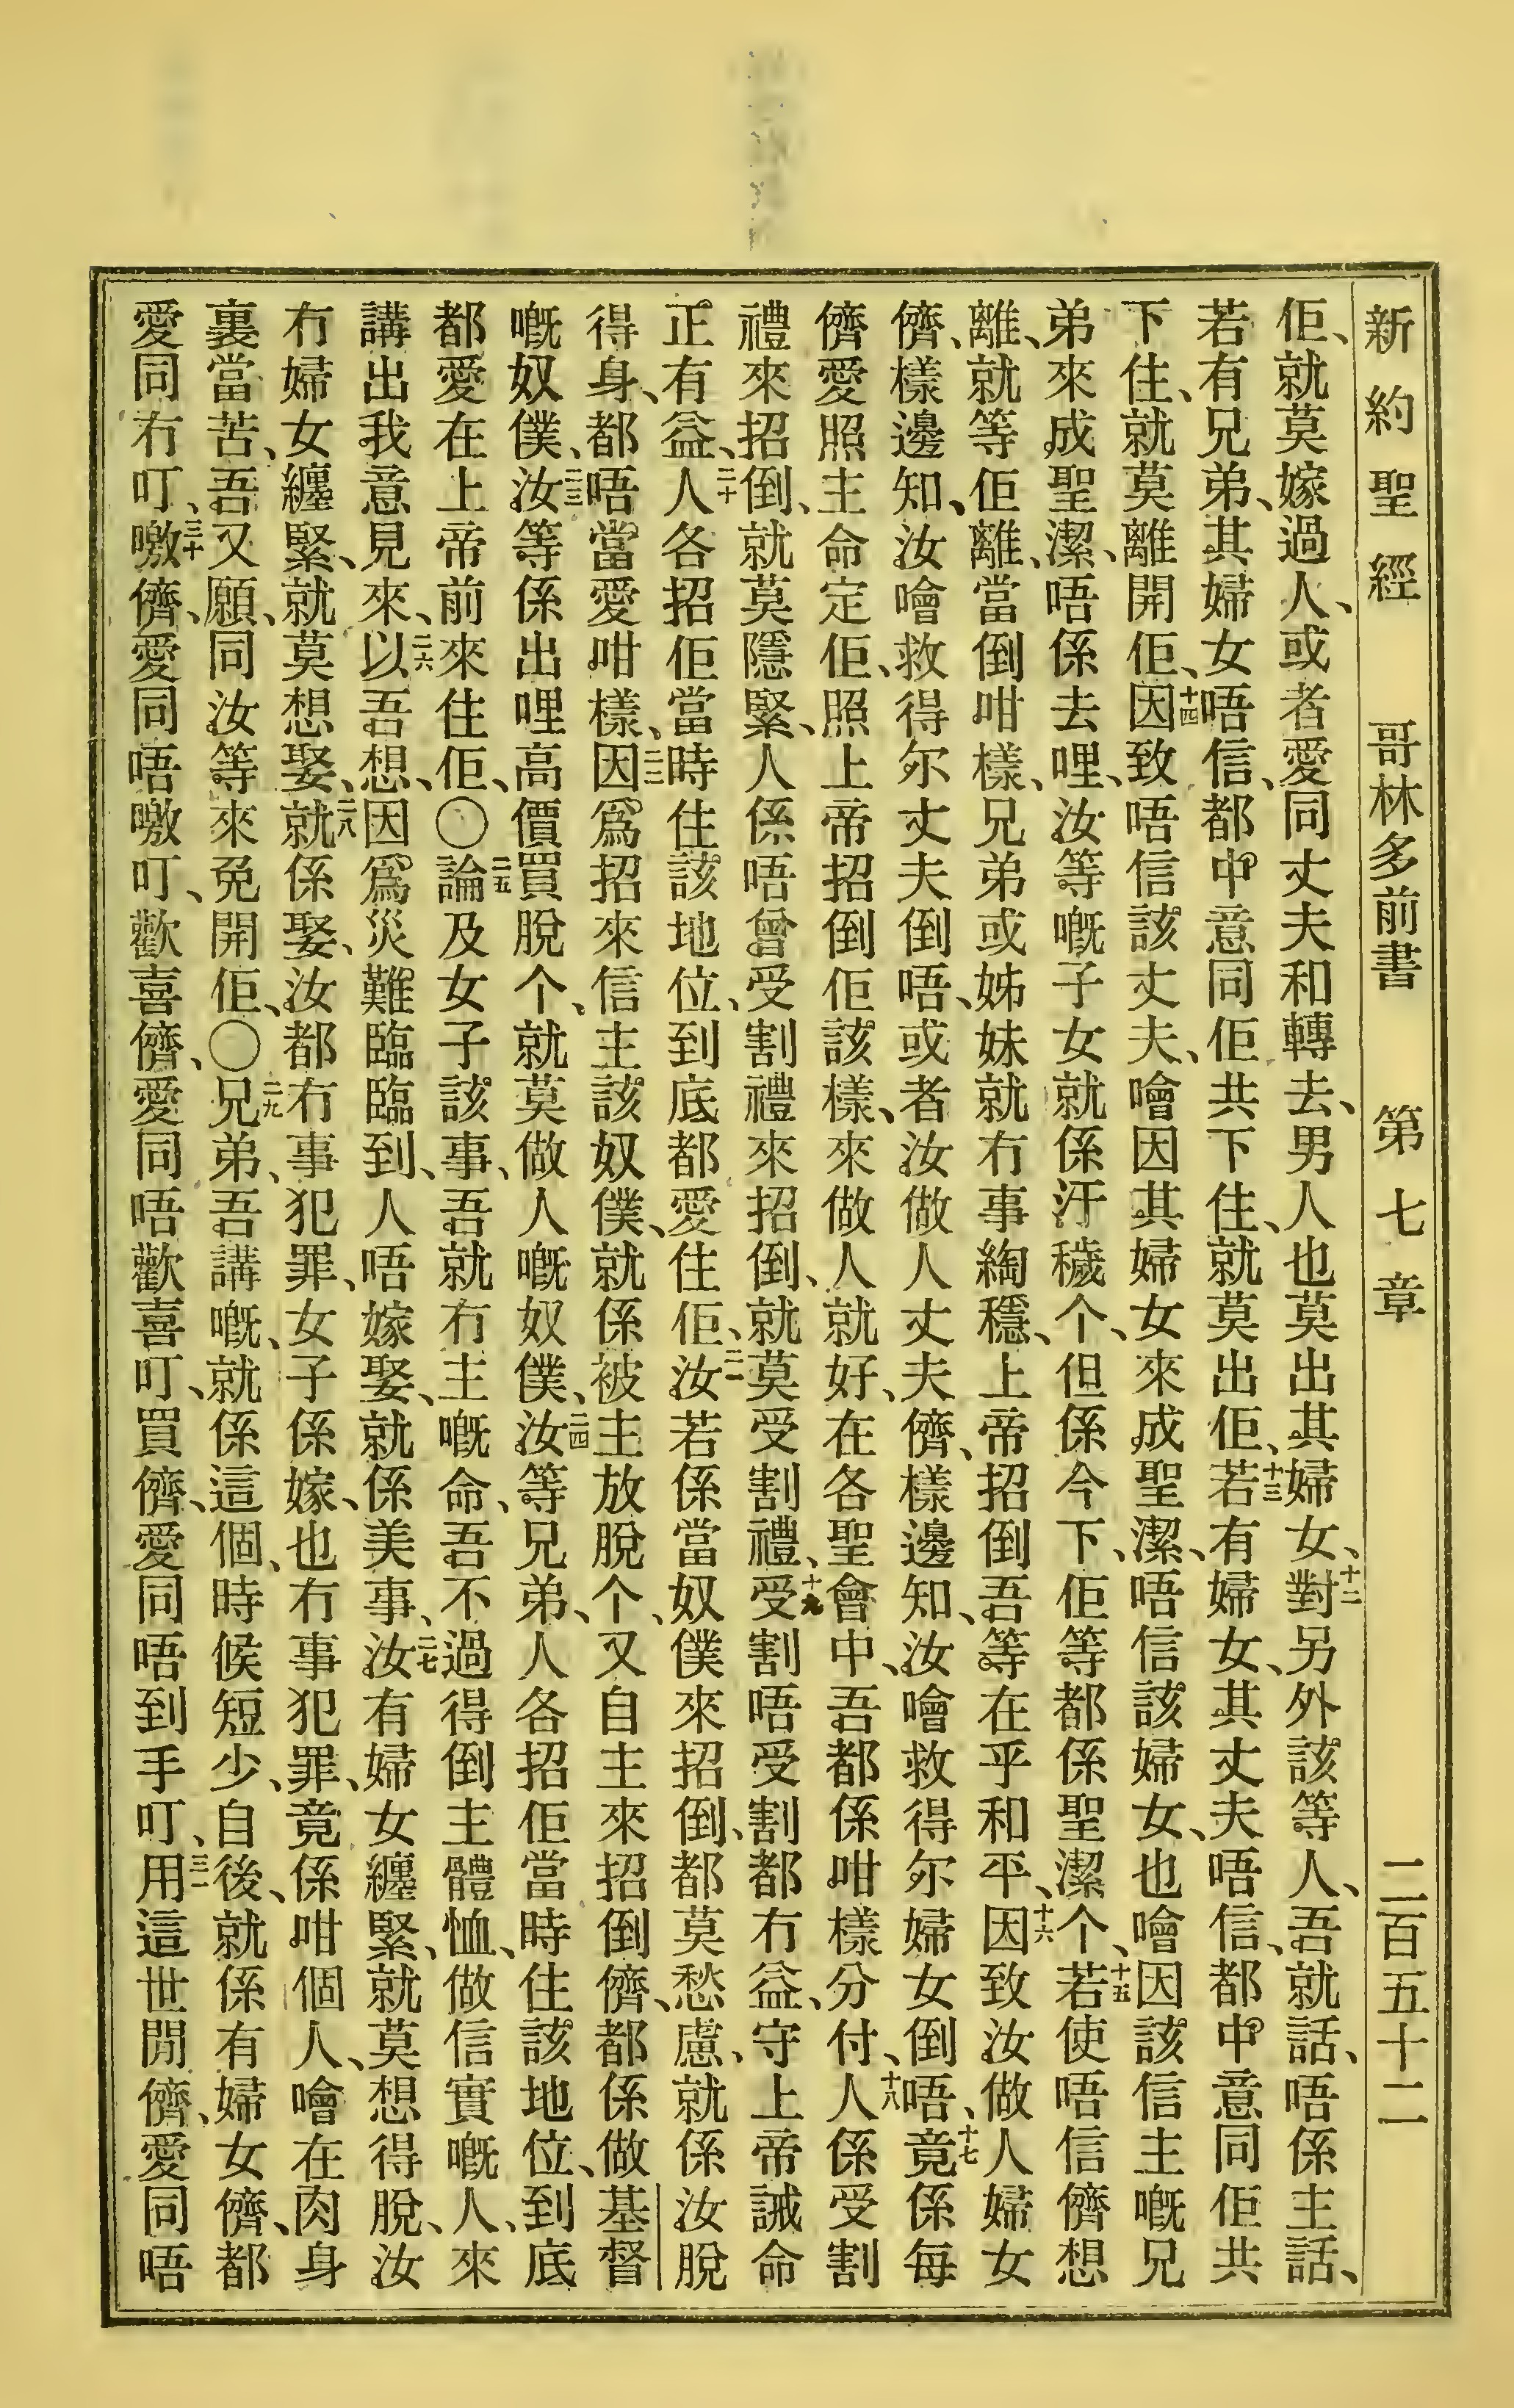 新約聖經 哥林多前書 第七章 二百五十二
佢、就莫嫁過人、或者愛同丈夫和轉去、男人也莫出其婦女、十二對另外該等人、吾就話、唔係主話、
若有兄弟、其婦女唔信、都中意同佢共下住、就莫出佢、十三若有婦女、其丈夫唔信、都中意同佢共
下住、就莫離開佢、十四因致唔信該丈夫、噲因其婦女來成聖潔、唔信該婦女、也噲因該信主嘅兄
弟來成聖潔、唔係去哩、汝等嘅子女就係汙穢个、但係今下、佢等都係聖潔个、十五若使唔信儕想
離、就等佢離、當倒咁樣、兄弟或姊妹就冇事綯穩、上帝招倒吾等在乎和平、十六因致汝做人婦女
儕、樣邊知、汝噲救得尔丈夫倒唔、或者汝做人丈夫儕、樣邊知、汝噲救得尔婦女倒唔、十七竟係每
儕愛照主命定佢、照上帝招倒佢該樣、來做人就好、在各聖會中、吾都係咁樣分付、十八人係受割
禮來招倒、就莫隱緊、人係唔曾受割禮來招倒、就莫受割禮、十九受割唔受割、都冇益、守上帝誡命
正有益、二十人各招佢當時住該地位、到底都愛住佢、二一汝若係當奴僕來招倒、都莫愁慮、就係汝脫
得身、都唔當愛咁樣、二二因爲招來信主該奴僕、就係被主放脫个、又自主來招倒儕、都係做基督
嘅奴僕、二三汝等係出哩高價買脫个、就莫做人嘅奴僕、二四汝等兄弟、人各招佢當時住該地位、到底
都愛在上帝前來住佢、〇二五論及女子該事、吾就冇主嘅命、吾不過得倒主體恤、做信實嘅人、來
講出我意見來、二六以吾想、因爲災難臨臨到、人唔嫁娶、就係美事、二七汝有婦女纏緊、就莫想得脫、汝
冇婦女纏緊、就莫想娶、二八就係娶、汝都冇事犯罪、女子係嫁、也冇事犯罪、竟係咁個人、噲在肉身
裏當苦、吾又願、同汝等來免開佢、〇二九兄弟、吾講嘅、就係這個、時候短少、自後、就係有婦女儕、都
愛同冇叮、三十噭儕、愛同唔噭叮、歡喜儕、愛同唔歡喜叮、買儕、愛同唔到手叮、三一用這世間儕、愛同唔